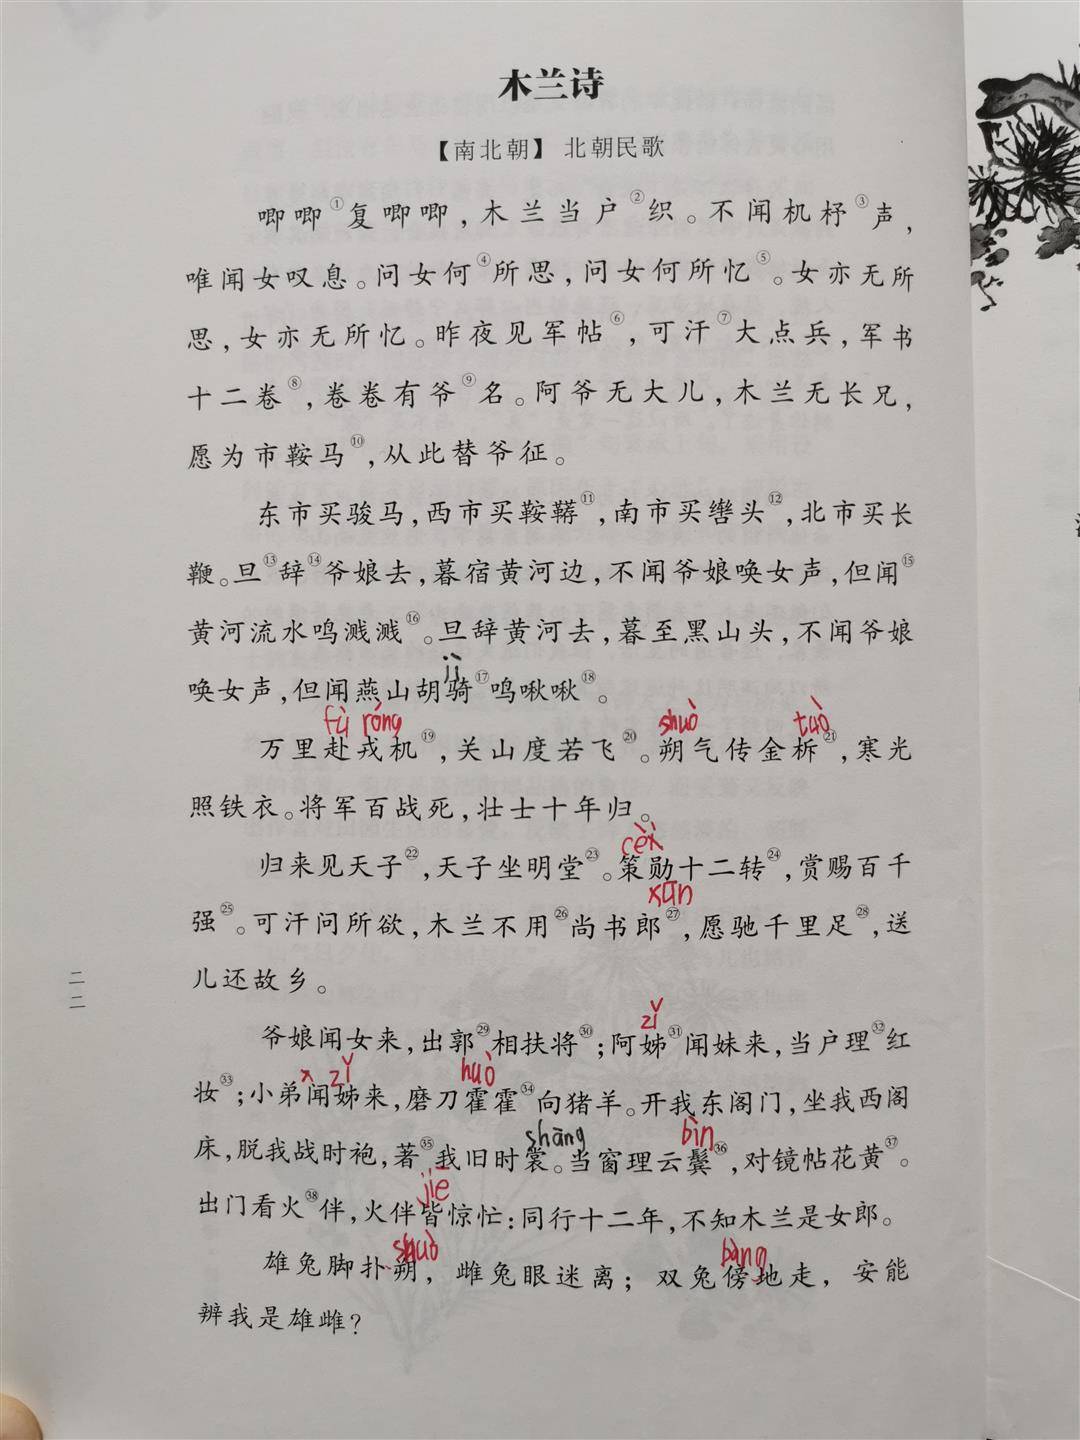 木兰诗
【南北朝】 北朝民歌
唧唧①复唧唧，木兰当户②织。不闻机杼③声，
唯闻女叹息。问女何④所思，问女何所忆⑤。女亦无所
思，女亦无所忆。昨夜见军帖⑥，可汗⑦大点兵，军书
十二卷⑧，卷卷有爷⑨名。阿爷无大儿，木兰无长兄，
愿为市鞍马⑩，从此替爷征。
东市买骏马，西市买鞍鞯⑪，南市买辔头⑫，北市买长
鞭。旦⑬辞⑭爷娘去，暮宿黄河边，不闻爷娘唤女声，但闻⑮
黄河流水鸣溅溅⑯。旦辞黄河去，暮至黑山头，不闻爷娘
jì
唤女声，但闻燕山胡骑⑰鸣啾啾⑱。
fù róng shuò tuò
万里赴戎机⑲，关山度若飞⑳。朔气传金柝㉑，寒光
照铁衣。将军百战死，壮士十年归。
cè
归来见天子㉒，天子坐明堂㉓。策勋十二转㉔，赏赐百千
xūn
强㉕。可汗问所欲，木兰不用㉖尚书郎㉗，愿驰千里足㉘，送
儿还故乡。
二二
zǐ
爷娘闻女来，出郭㉙相扶将㉚；阿姊㉛闻妹来，当户理㉜红
zǐ huò
妆㉝；小弟闻姊来，磨刀霍霍㉞向猪羊。开我东阁门，坐我西阁
shāng bìn
床，脱我战时袍，著㉟我旧时裳。当窗理云鬓㊱，对镜帖花黄㊲。
jiē
出门看火㊳伴，火伴皆惊忙：同行十二年，不知木兰是女郎。
shuò bàng
雄兔脚扑朔，雌兔眼迷离；双兔傍地走，安能
辨我是雄雌？